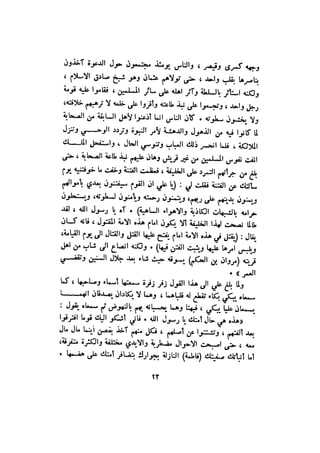 وجهه كسرى وقيصر ، والناس يومئذ مجتمعون حول الدعوة آخذون
بناصرها بقلب واحد ، حتى تولاهم عثمان وهو شيخ صادق الاسلام ،
ولكنه استأثر بالسلطة وآثر اهله على سائر المسلمين ، فقاموا عليه قومة
رجل واحد ، وتجمعوا على نبذ طاعته وأقروا على خلعه لا ترهبهم خلافته،
ولا يخشون سطوته • كان الناس انما أذعنوا لأهل السابقة من الصحابة
لما كانوا فيه من الذهول والدهشة لأمر النبوة وتردد الوحي وتنزل
الملائكة ، فلما انحسر ذلك العباب وتنوسي الحال ، واستفحل الملك
انفت نفوس المسلمين من غير قريش وهان عليهم نبذ طاعة الصحابة ، حتى
بلغ من جرأتهم التمرد على الخليفة ، فعظمت الفتنة وخفت ما خوفتنيه يوم
سألتك عن الفتنة فقلت لي : (يا علي ان القوم سيفتنون بعدي بأموالهم
ويمنون بدينهم على ربهم، ويتمنون رحمته ويأمنون لسطوته، ويستحلون
حرامه بالشبهات الكاذبة والاهواء الساهية) • آه يا رسول الله ، لقد
طالما نصحت لهذا الخليفة ألا يكون امام هذه الامة المقتول ، فانه كان
يقال : (يقتل في هذه الامة امام يفتح عليها القتل والقتال الى يوم القيامة،
ويلبس امرها عليها ويثبت الفتن فيها) • ولكنه انصاع الى شاب من اهل
قريته (مروان بن الحكم) يسوقه حيث شاء بعد جلال السنين وتقضي
العمر » •
ولما بلغ علي الى هذا القول زفر زفرة سمعتها أسماء وصاحبها ، كما
سمعاه يبكي بكاء تقطع له قلباهما ، وهما لا يكادان يصدقان انهما
يسمعان عليا يبكي ، فبهتا وهما يحسبانه يهم بالنهوض ثم سمعاه يقول :
«هذه هي حال أمتك يا رسول الله • فاني أشكو اليك قوما افترقوا
بعد ألفتهم ، وتشتتوا عن أصلهم ، فكل منهم آخذ بغصن أينما مال مال
معه ، حتى اصبحت الاحوال مضطربة والايدي مختلفة والكثرة متفرقة،
أما أنبأتك صفيتك (فاطمة) النازلة بجوارك بتضافر أمتك على هضمها •
٢٣